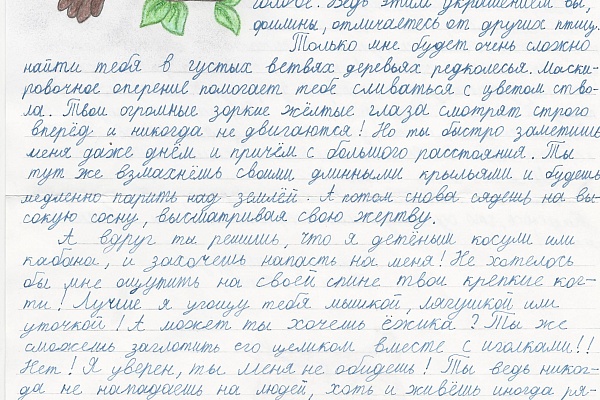 голове. Ведь этим украшением вы,
филины, отличаетесь от других птиц.
Только мне будет очень сложно
найти тебя в густых ветвях деревьях редколесья. Маски-
ровочное оперение помогает тебе сливаться с цветом ство-
ла. Твои огромные зоркие жёлтые глаза смотрят строго
вперёд и никогда не двигаются! Но ты быстро заметишь
меня даже днём и причём с большого расстояния. Ты
тут же взмахнёшь своими длинными крыльями и будешь
медленно парить над землёй. А потом снова сядешь на вы-
сокую сосну, высматривая свою жертву.
А вдруг ты решишь, что я детёныш косули или
кабана, и захочешь напасть на меня! Не хотелось
бы мне ощутить на своей спине твои крепкие ког-
ти! Лучше я угощу тебя мышкой, лягушкой или
уточкой! А может ты хочешь ёжика? Ты же
сможешь заглотить его целиком вместе с иголками!!
Нет! Я уверен, ты меня не обидешь! Ты ведь никог-
да не нападаешь на людей, хоть и живёшь иногда ря-